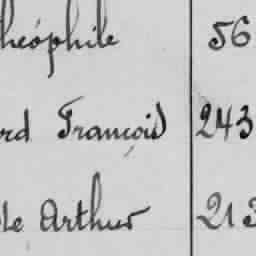 héophile 56
rd François 243
le Arthur 213